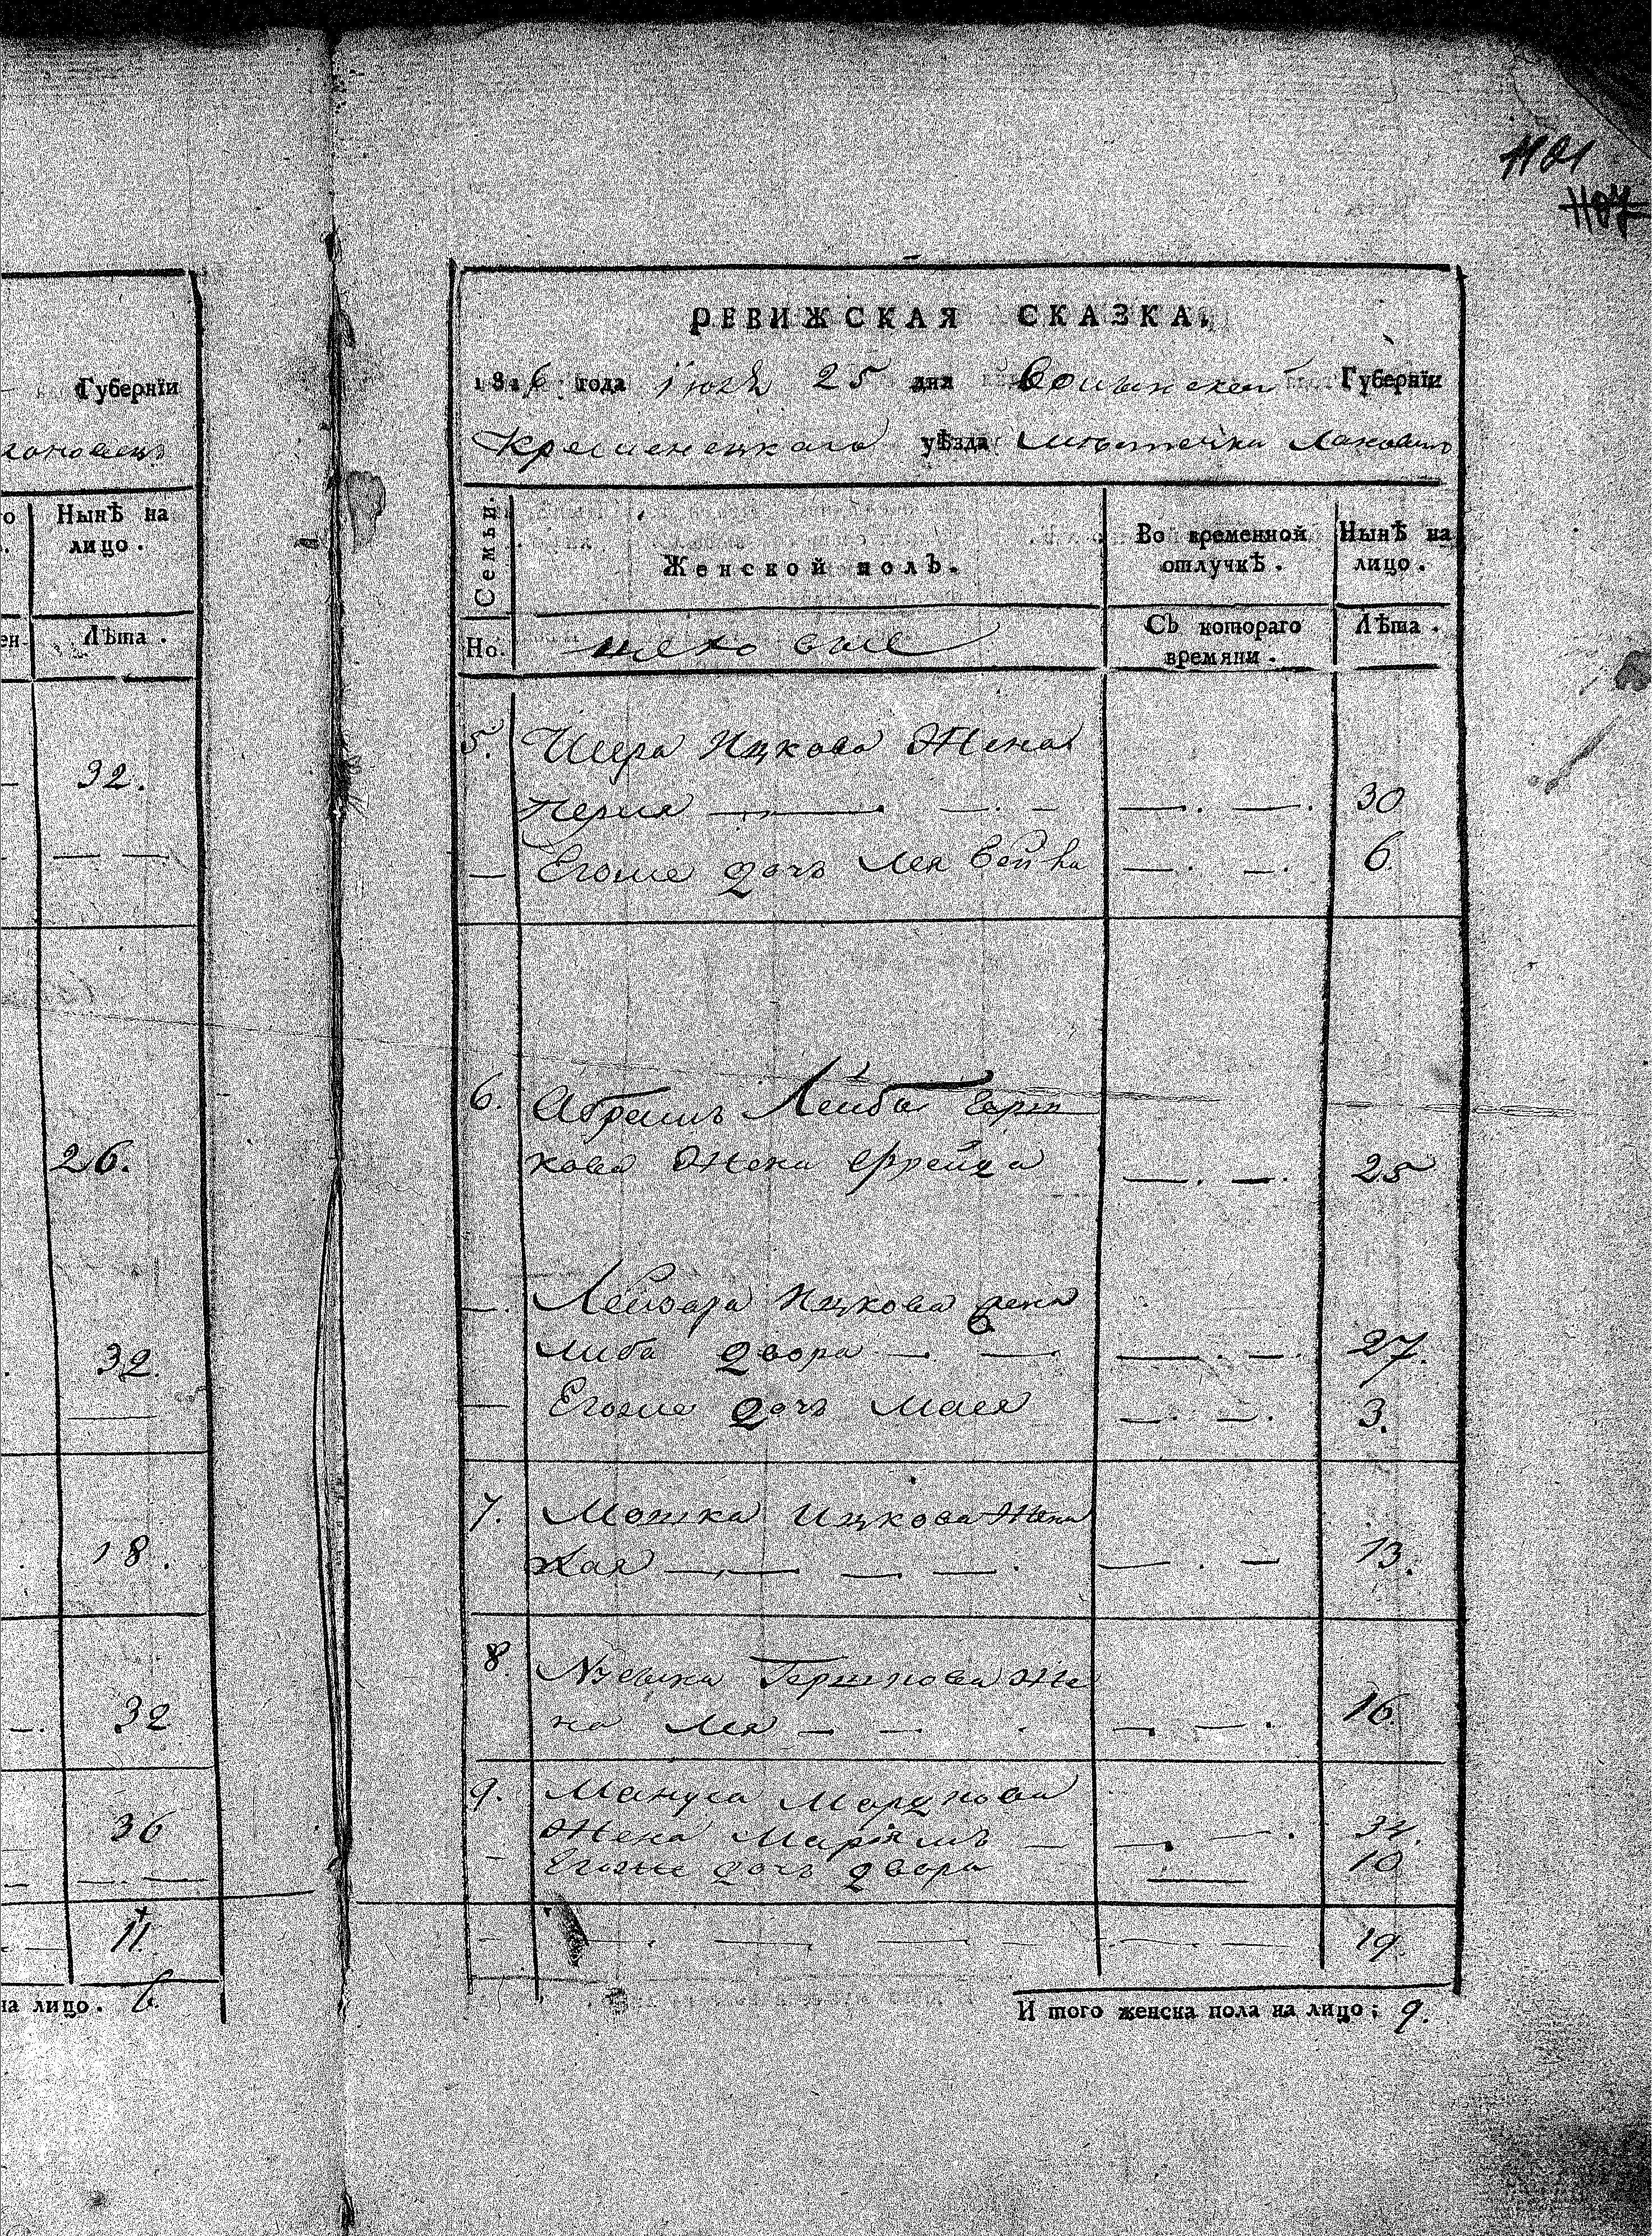 1101
1107
Губернїи
Нынѣ на
лицо.
Лѣта.
32.
26.
32.
18.
32
36
11.
на лицо. 6.
РЕВИЖСКАЯ СКАЗКА,
1816 года Июля 25 дня Волынской Губернїи
Кременецкаго уѣзда местечка
Семьи.
Женской полъ.
Во временной
отлучкѣ.
Нынѣ на
лицо.
Но.
Съ котораго
времяни.
Лѣта.
5. Ицкова Жена
Перля 30
Егоже дочь Лея Бейла 6
6. Абрамъ Лейба Герш
кова Жена Фрейда 25
Лейзора Ицкова жена
Либа двора 27.
Егоже дочь Малея 3.
7. Мошка Ицкова Жена
Хая 13.
8. Гершкова Же
на Лея 16
9. Мануса Мордкова
Жена Марїямъ 34.
Егоже дочь двора 10
19
И того женска пола на лицо; 9.